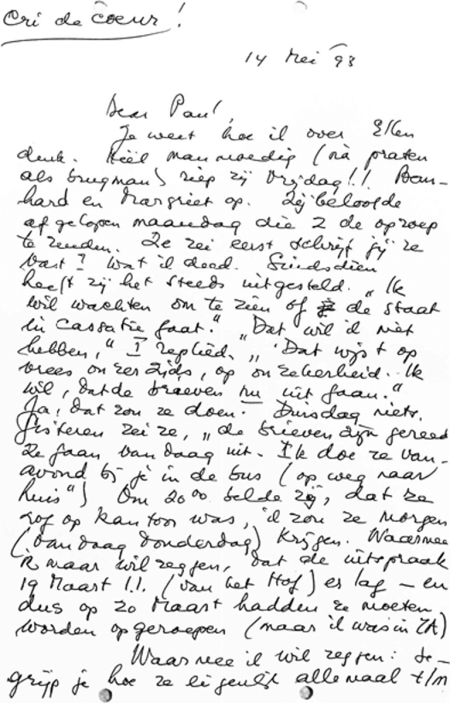 Cri de coeur!
14 Mei '93
Dear Paul,
Je weet hoe ik over Ellen
denk. Héél manmoedig (na praten
als brugman) riep zij vrijdag!!. Bern-
hard en Margriet op. Zij beloofde
afgelopen maandag die 2 de oproep
te zenden. Ze zei eerst schrijf jij ze
vast? Wat ik deed. Sindsdien
heeft zij het steeds uitgesteld. „Ik
wil wachten om te zien of de staat
in cassatie gaat." „Dat wil ik niet
hebben," I replied, „Dat wijst op
vrees onzerzijds, op onzekerheid. Ik
wil, dat de brieven nu uit gaan."
Ja, dat zou ze doen. Dinsdag niets.
Gisteren zei ze, „de brieven zijn gereed
Ze gaan vandaag uit. Ik doe ze van-
avond bij je in de bus (op weg naar
huis") Om 20.00 belde zij, dat ze
nog op kantoor was, ik zou ze morgen
(vandaag donderdag) krijgen. Waarmee
ik maar wil zeggen, dat de uitspraak
19 Maart !.!. (van het Hof) er lag – en
dus op 20 Maart hadden ze moeten
worden opgeroepen (maar ik was in ZA)
Waarmee ik wil zeggen: be-
grijp je hoe ze eigenlijk allemaal t/m